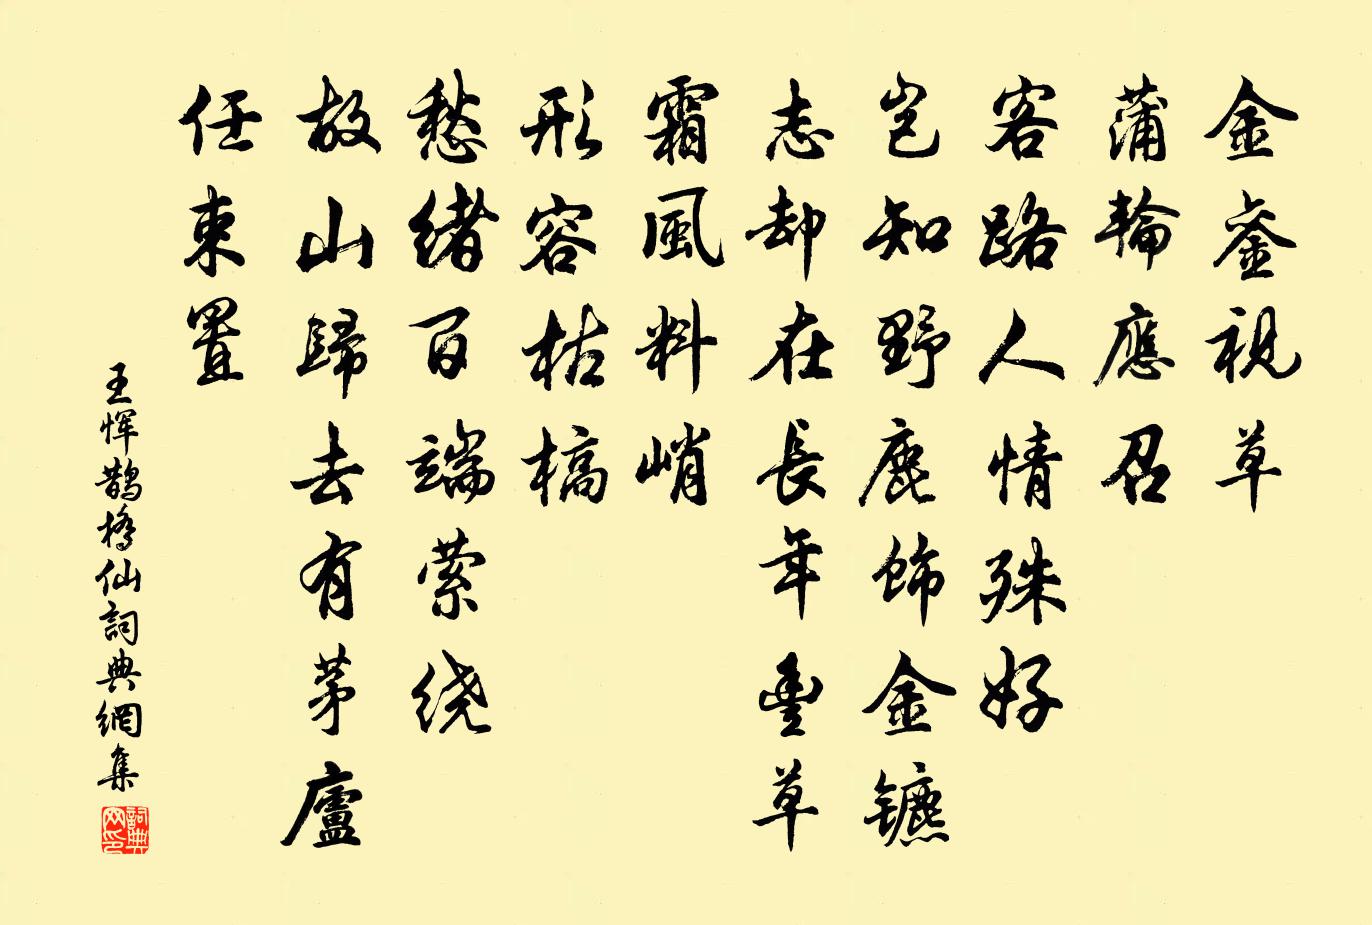 金銮視草
蒲輪應召
客路人情殊好
岂知野鹿飾金镳
志却在長年豐草
霜風料峭
形容枯槁
愁緒百端萦绕
故山歸去有茅廬
任束置
王恽鵲橋仙詞典網集
詞典网印